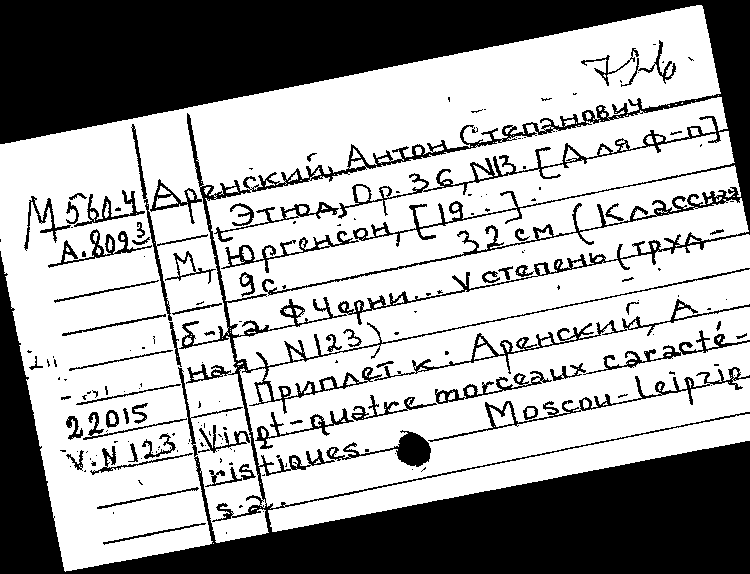 726
Аренский, Антон Степанович
М 560-4
А.809³
Этюд, Op. 36, N13. [Для ф-п]
М., Юргенсон, [19..].
9с. 32 см. (Классная
б-ка. Ф.Черни... V степень (труд-
ная) N123).
Приплет. к: Аренский, А.
22015
V.N 123
Vingt-quatre morceaux caracté-
ristiques. Moscou-Leipzig
s.a.